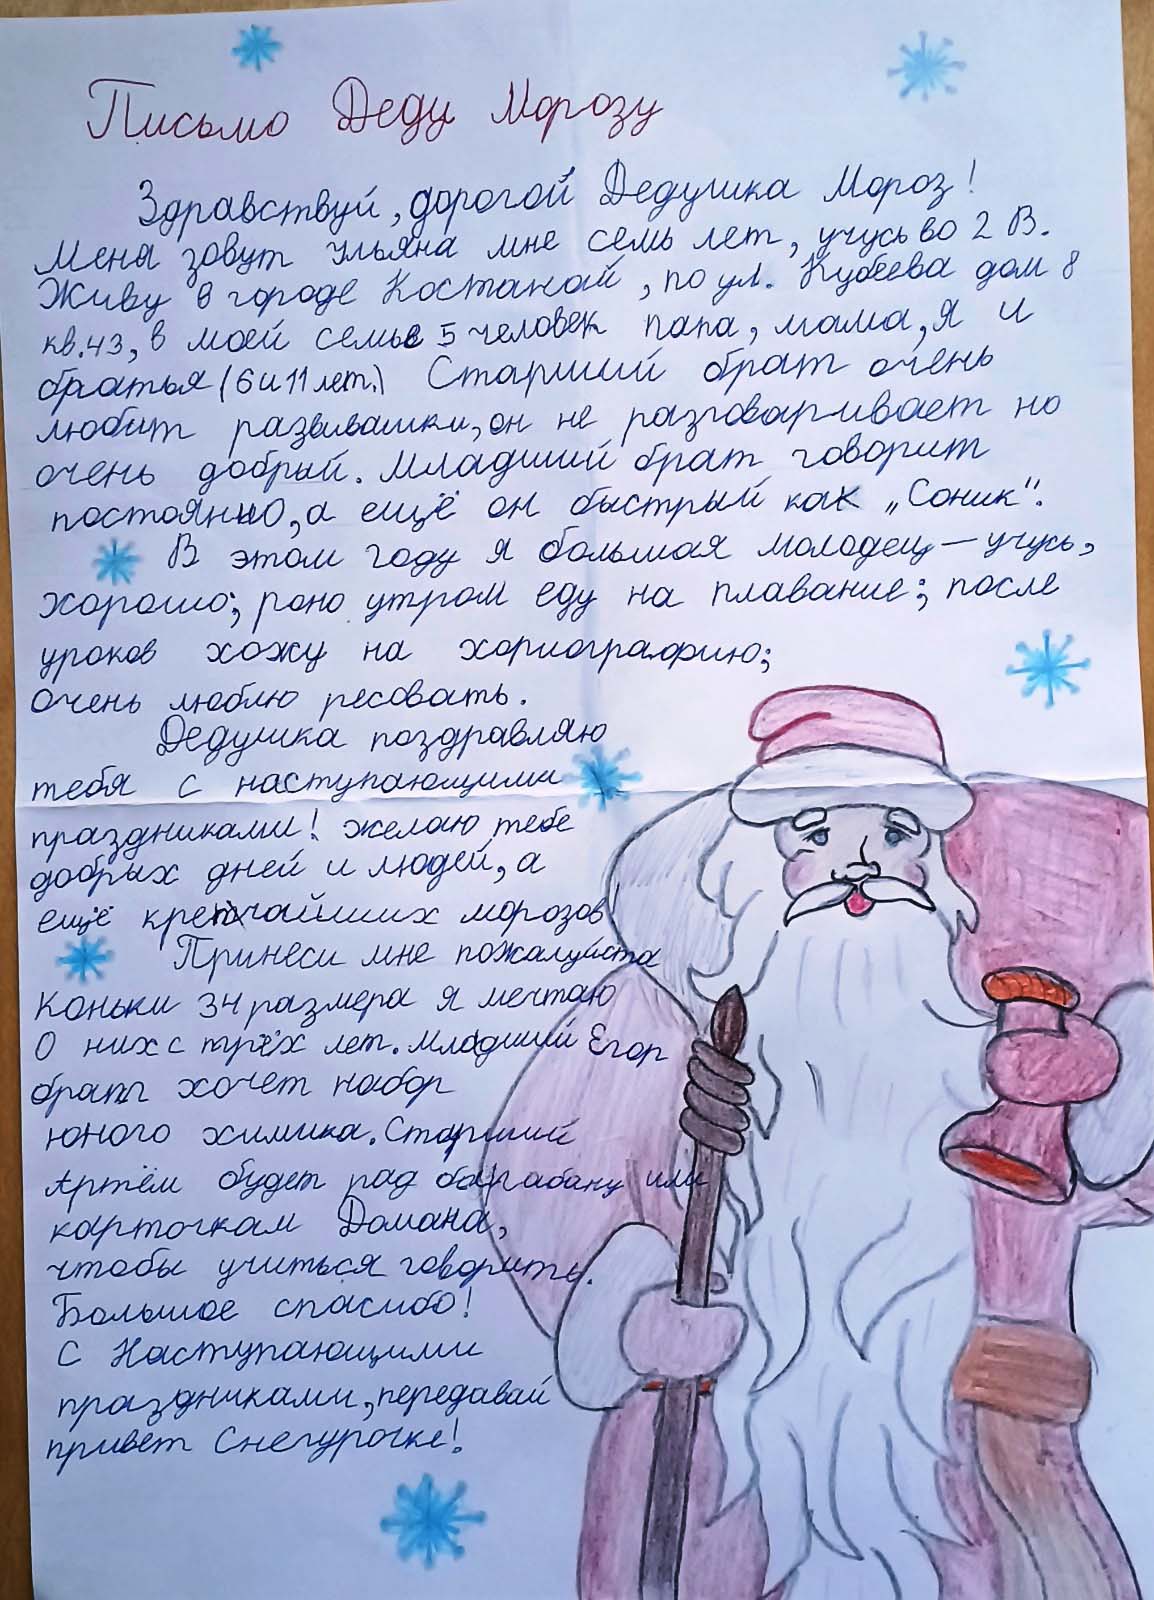 Письмо Деду Морозу
Здравствуй, дорогой Дедушка Мороз!
Меня зовут Ульяна мне семь лет, учусь во 2 В.
Живу в городе Костанай, по ул. Кубеева дом 8
кв.43, в моей семье 5 человек папа, мама, я и
братья (6 и 11 лет.) Старший брат очень
любит развивашки, он не разговаривает но
очень добрый. Младший брат говорит
постоянно, а ещё он быстрый как „Соник".
В этом году я большая молодец – учусь,
хорошо; рано утром еду на плавание; после
уроков хожу на хориографию;
очень люблю ресовать.
Дедушка поздравляю
тебя с наступающими
праздниками! желаю тебе
добрых дней и людей, а
ещё крепчайших морозов
Принеси мне пожалуйста
Коньки 34 размера я мечтаю
О них с трёх лет. Младший Егор
брат хочет набор
юного химика. Старший
Артём будет рад барабану или
карточкам Домана,
чтобы учиться говорить.
Большое спасибо!
С Наступающими
праздниками, передавай
привет Снегурочке!